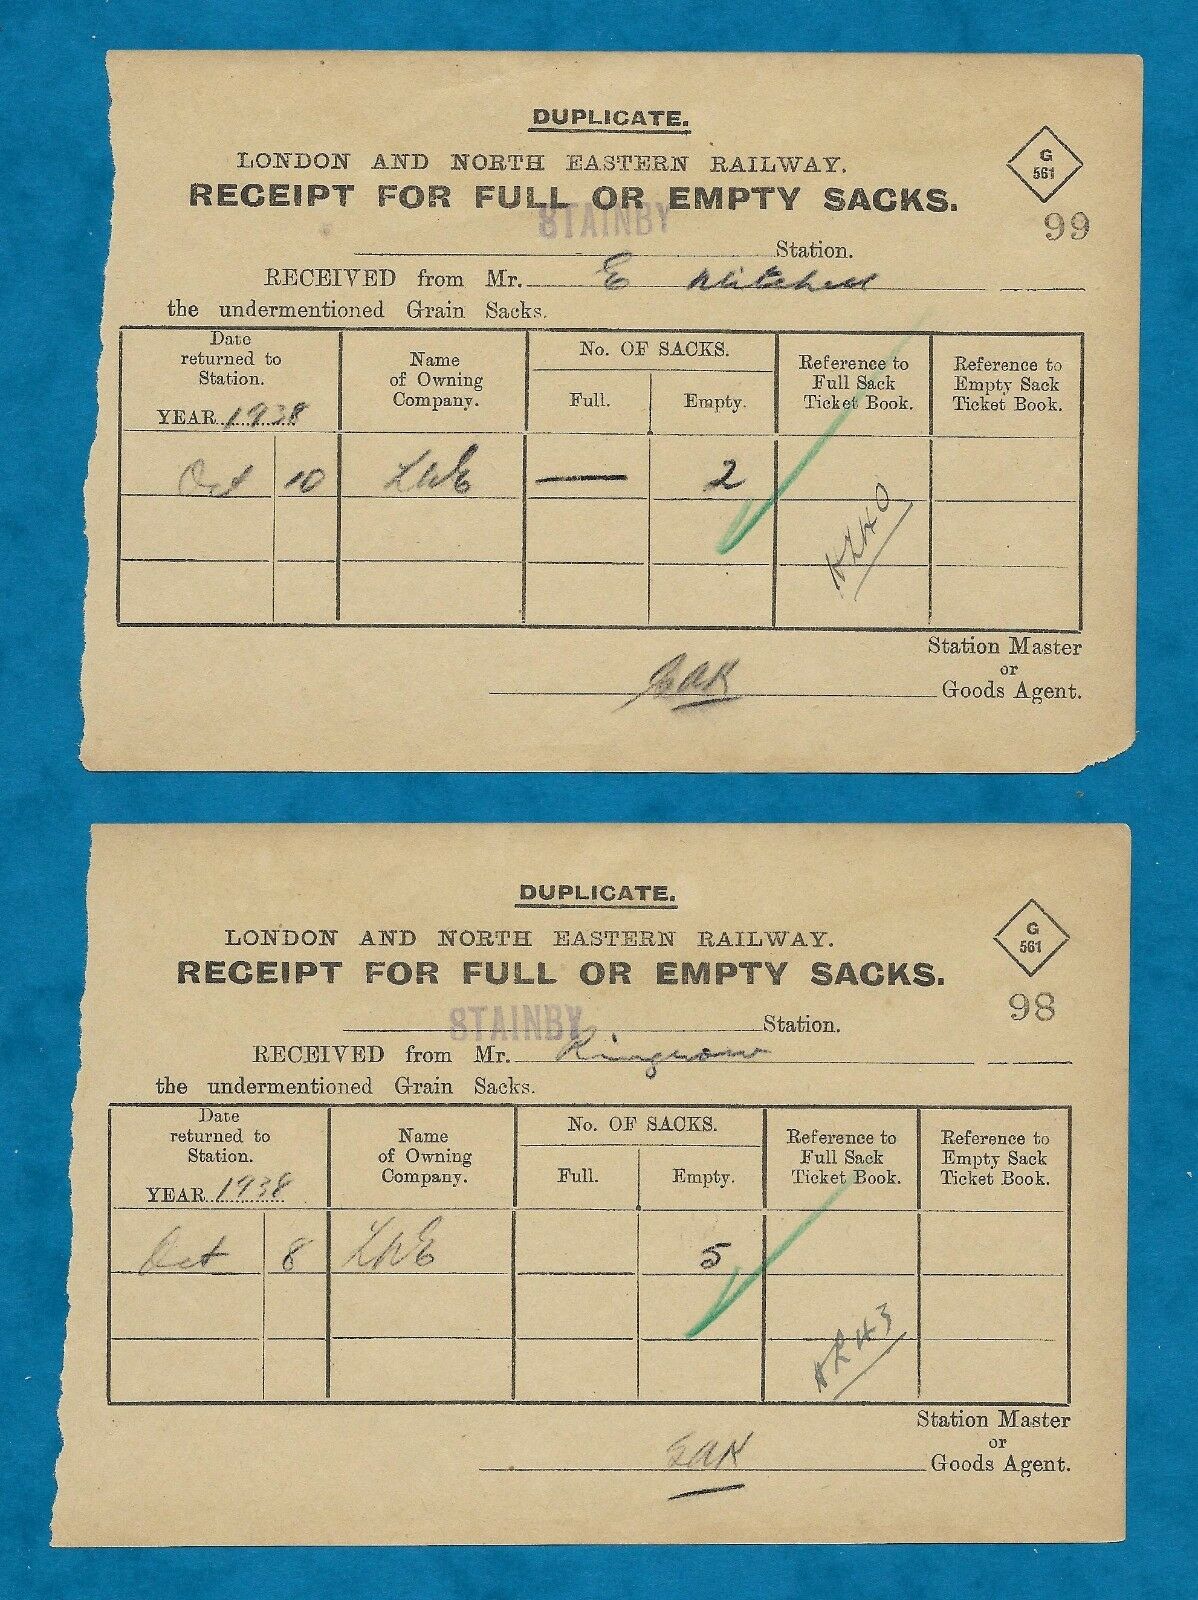 DUPLICATE.
LONDON AND NORTH EASTERN RAILWAY.
G
561
RECEIPT FOR FULL OR EMPTY SACKS.
99
STAINBY
Station.
RECEIVED from Mr. E Mitchell
the undermentioned Grain Sacks.
Date returned to Station.
YEAR 1938
Name of Owning Company.
No. OF SACKS.
Full.
Empty.
Reference to Full Sack Ticket Book.
Reference to Empty Sack Ticket Book.
Oct 10 LNE — 2
Station Master
or
Goods Agent.
GAK
DUPLICATE.
LONDON AND NORTH EASTERN RAILWAY.
G
561
RECEIPT FOR FULL OR EMPTY SACKS.
98
STAINBY
Station.
RECEIVED from Mr.
the undermentioned Grain Sacks.
Date returned to Station.
YEAR 1938
Name of Owning Company.
No. OF SACKS.
Full.
Empty.
Reference to Full Sack Ticket Book.
Reference to Empty Sack Ticket Book.
Oct 8 LNE 5
Station Master
or
Goods Agent.
GAK